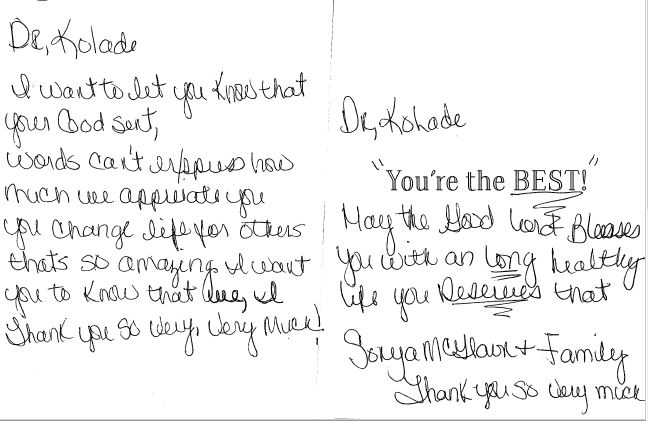 Dr, Kolade
I want to let you Know that
your God sent,
words can't express how
much we appreciate you
you change life for others
thats so amazing, I want
you to know that we, I
Thank you so Very, Very Much!
Dr, Kolade
"You're the BEST!"
May the Good Lord Blesses
You with an Long healthy
life you Deserves that
Sonya + Family
Thank you so very much